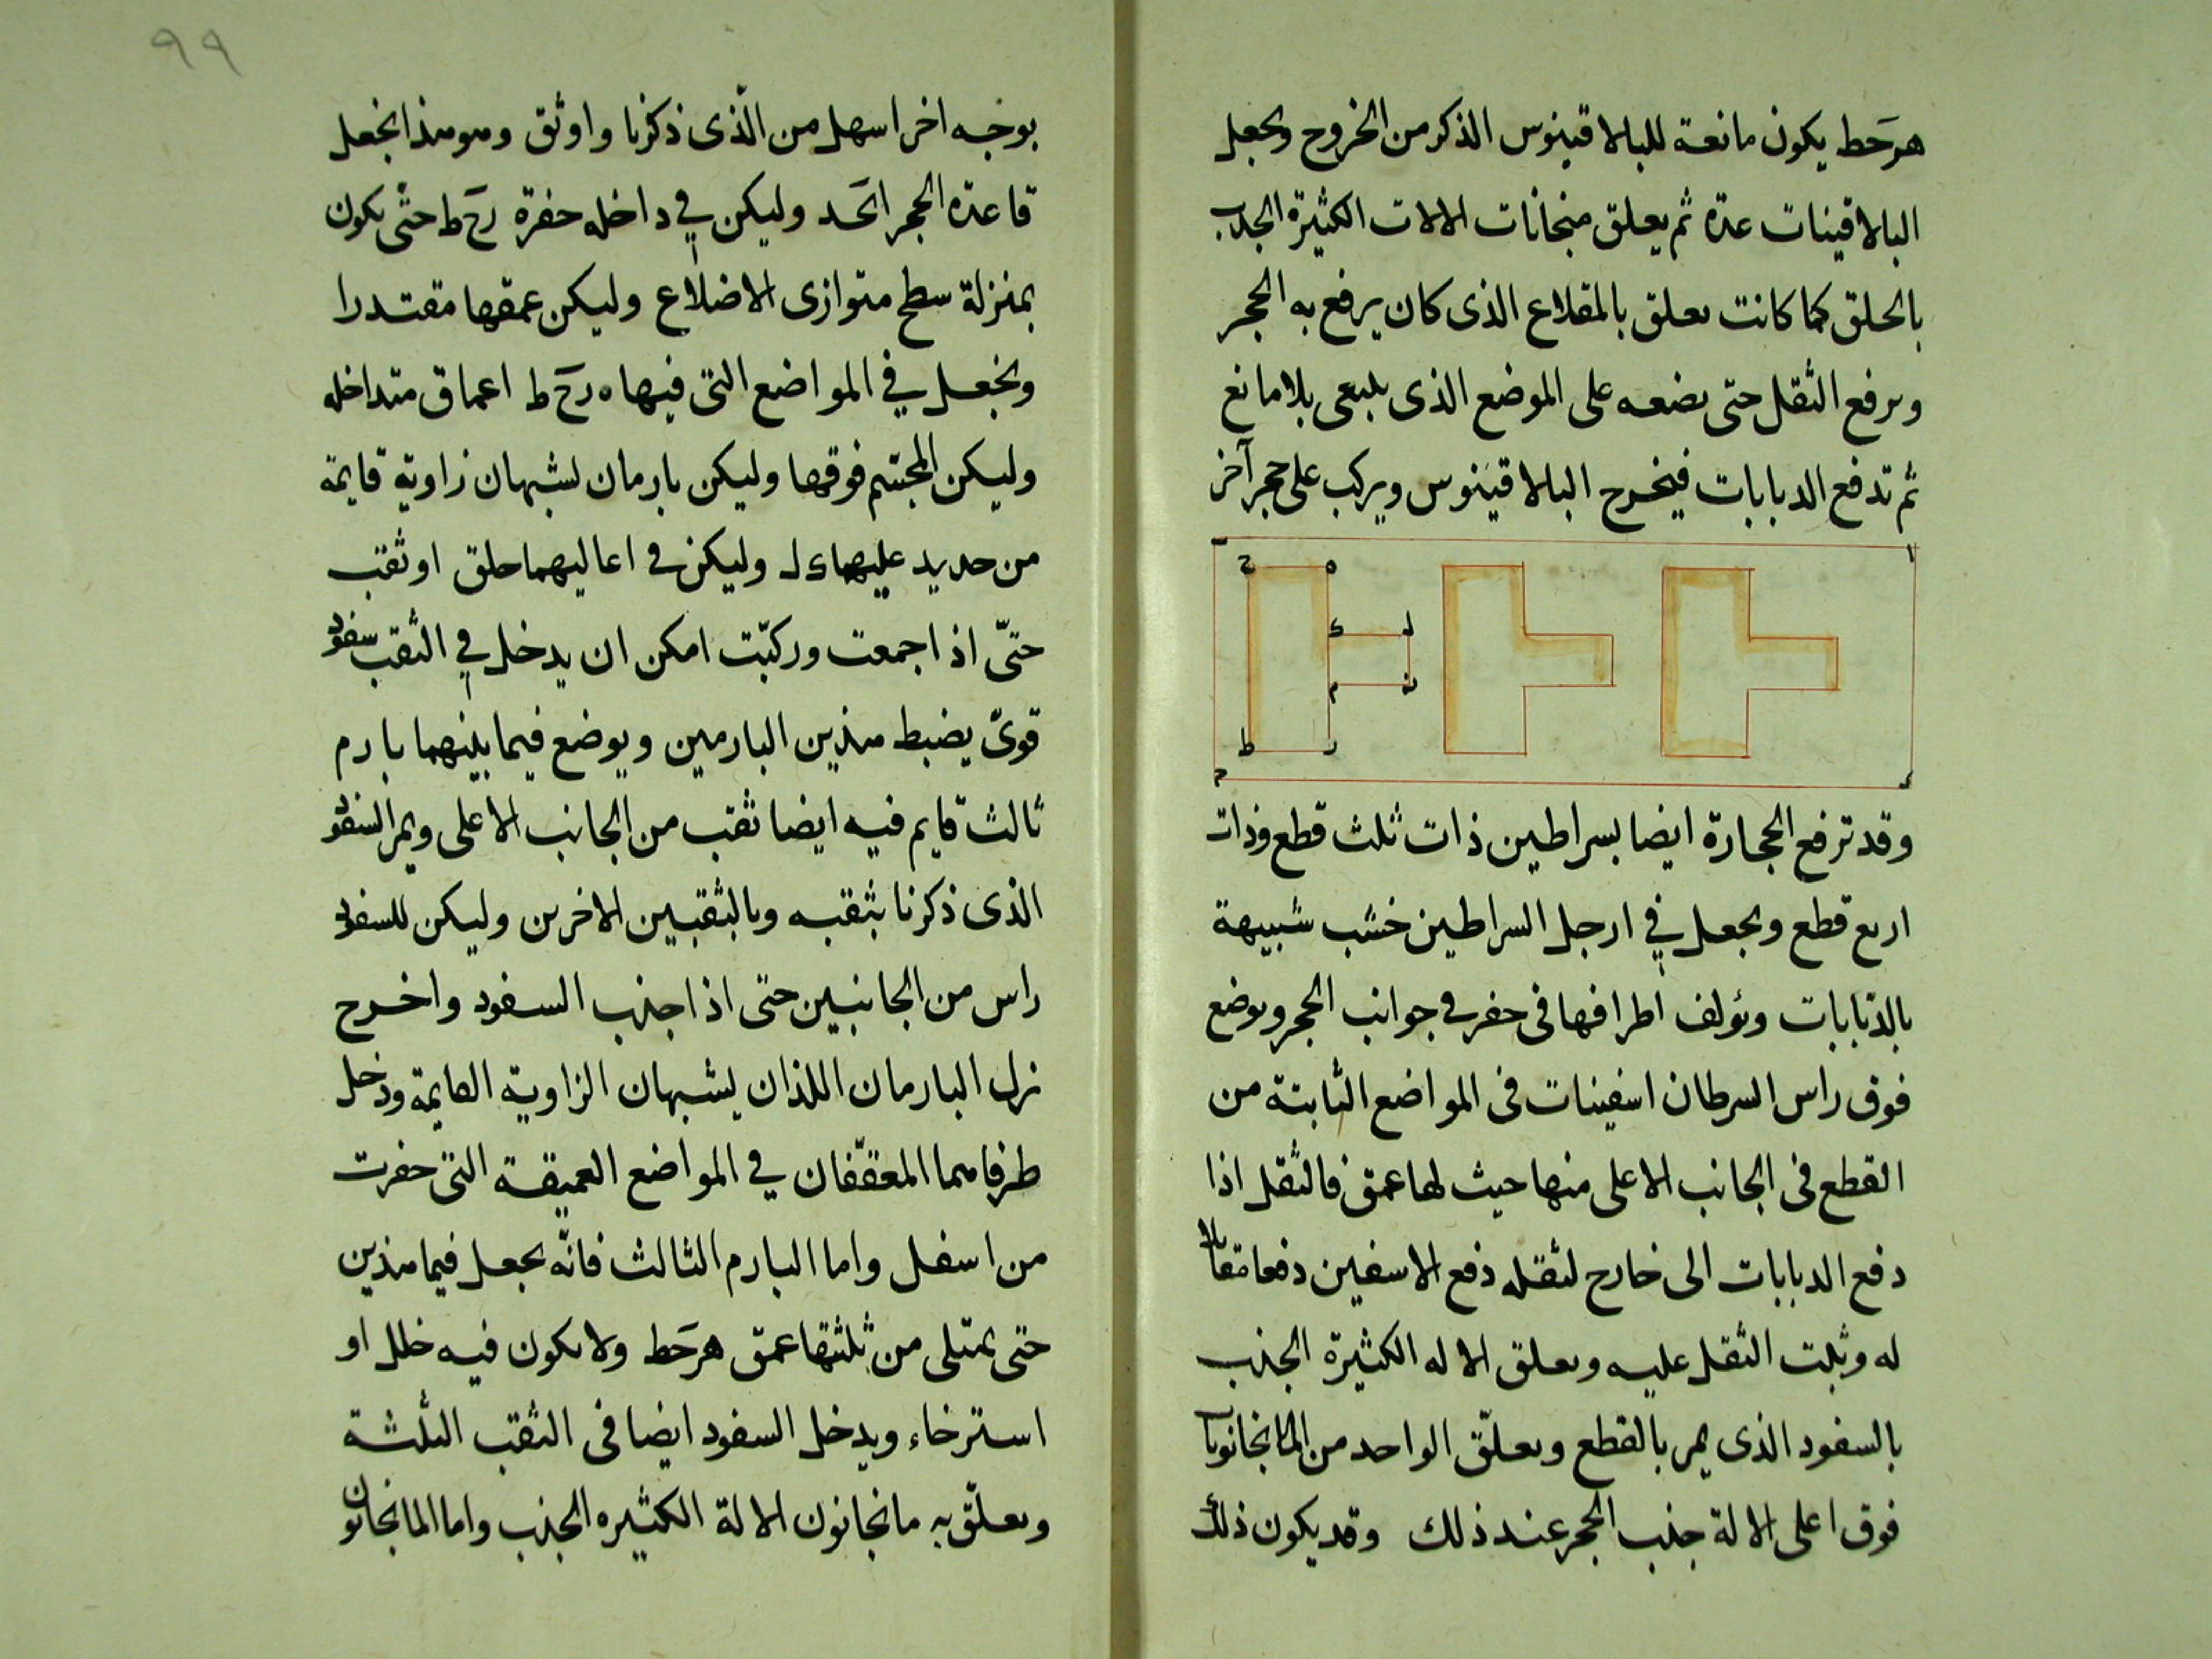 هرحط يكون مانعة للبالاقينوس الذكر من الخروج ويجعل
البالاقينات عدة ثم يعلق منجانات الالات الكثيرة الجذب
بالحلق كما كانت تعلق بالمقلاع الذى كان يرفع به الحجر
ويرفع الثقل حتى يضعه على الموضع الذى ينبغى بلا مانع
ثم تدفع الدبابات فيخرج البالاقينوس ويركب على حجر آخر
ا
ح ه
ك ل
م ن
ط ر
وقد ترفع الحجارة ايضا بسراطين ذات ثلث قطع وذات
اربع قطع ويجعل في ارجل السراطين خشب شبيهة
بالدبابات وتؤلف اطرافها فى حفر في جوانب الحجر ويوضع
فوق راس السرطان اسفينات فى المواضع الثابتة من
القطع فى الجانب الاعلى منها حيث لها عمق فالثقل اذا
دفع الدبابات الى خارج لثقله دفع الاسفين دفعا مقابلا
له وثبت الثقل عليه ويعلق الاله الكثيرة الجذب
بالسفود الذى يمر بالقطع ويعلّق الواحد من
فوق اعلى الالة جذب الحجر عند ذلك وقد يكون ذلك
٩٩
بوجه اخر اسهل من الّذى ذكرنا واوثق وهو هذا نجعل
قاعدة الحجر وليكن في داخله حفرة رح ط حتّى يكون
بمنزلة سطح متوازى الاضلاع وليكن عمقها مقتدرا
ونجعل في المواضع التى فيها ه رح ط اعماق متداخله
وليكن المجسّم فوقها وليكن بارمان يشبهان زاوية قايمة
من حديد عليهما ك ل وليكن فى اعاليهما حلق او ثقب
حتّى اذا جمعت وركبّت امكن ان يدخل في الثقب سفود
قوىّ يضبط هذين البارمين ويوضع فيما بينهما بارم
ثالث قايم فيه ايضا ثقب من الجانب الاعلى ويمر السفود
الذى ذكرنا بثقبه وبالثقبين الاخرين وليكن للسفود
راس من الجانبين حتى اذا جذب السفود واخرج
نزل البارمان اللذان يشبهان الزاوية القايمة ودخل
طرفاهما المعقّفان في المواضع العميقة التى حفرت
من اسفل واما البارم الثالث فانّه يجعل فيما هذين
حتى يمتلى من ثلثتها عمق هرحط ولا يكون فيه خلل او
استرخاء ويدخل السفود ايضا فى الثقب الثلثة
ويعلّق به مانجانون الالة الكثيره الجذب واما المانجانون